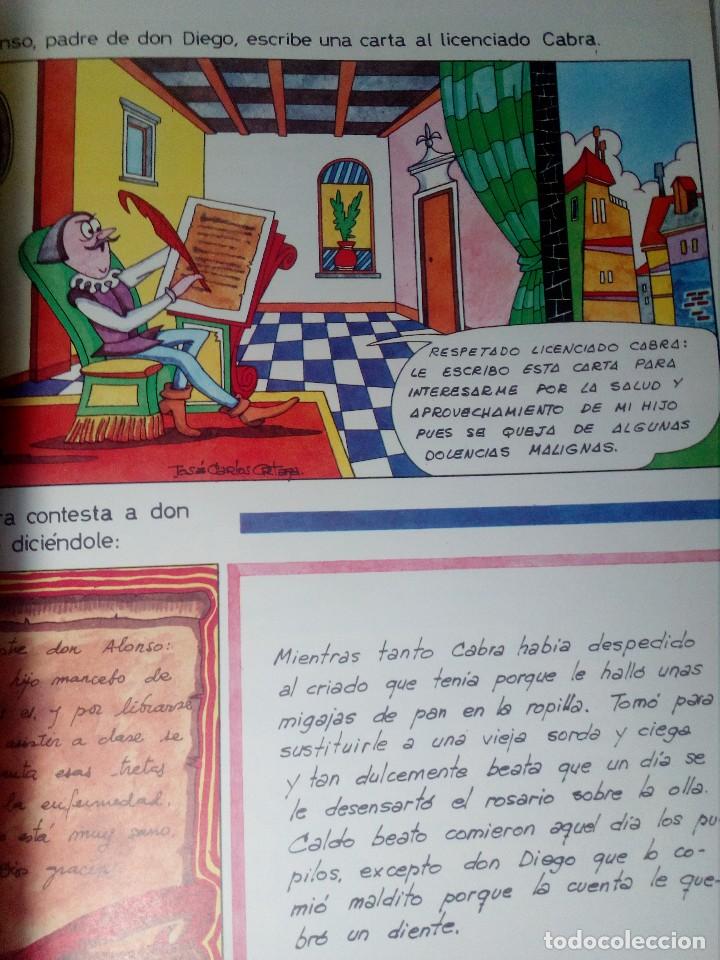 nso, padre de don Diego, escribe una carta al licenciado Cabra.
RESPETADO LICENCIADO CABRA:
LE ESCRIBO ESTA CARTA PARA
INTERESARME POR LA SALUD Y
APROVECHAMIENTO DE MI HIJO
PUES SE QUEJA DE ALGUNAS
DOLENCIAS MALIGNAS.
José Carlos
ra contesta a don
diciéndole:
don Alonso:
hijo mancebo de
es, y por librarse
asister a clase se
esas tretas
la enfermedad.
está muy sano,
gracias!
Mientras tanto Cabra habia despedido
al criado que tenia porque le halló unas
migajas de pan en la ropilla. Tomó para
sustituirle a una vieja sorda y ciega
y tan dulcemente beata que un día se
le desensartó el rosario sobre la olla.
Caldo beato comieron aquel dia los pu-
pilos, excepto don Diego que lo co-
mió maldito porque la cuenta le que-
bró un diente.
todocoleccion